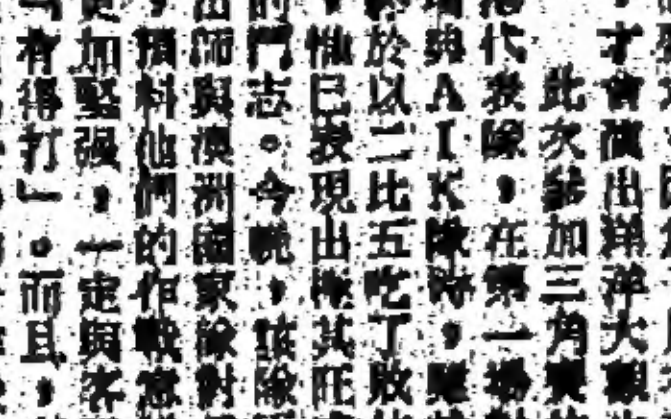 才會演出洋洋大觀
此次參加三角
港代表隊,在第一場
瑞典AIK隊時,
於以二比五吃了敗
惟已表現出極其旺
的鬥志。今晚,該隊
出師與澳洲國家隊對
,預料他們的作戰意
更加堅强,一定與客
有得打」。而且,